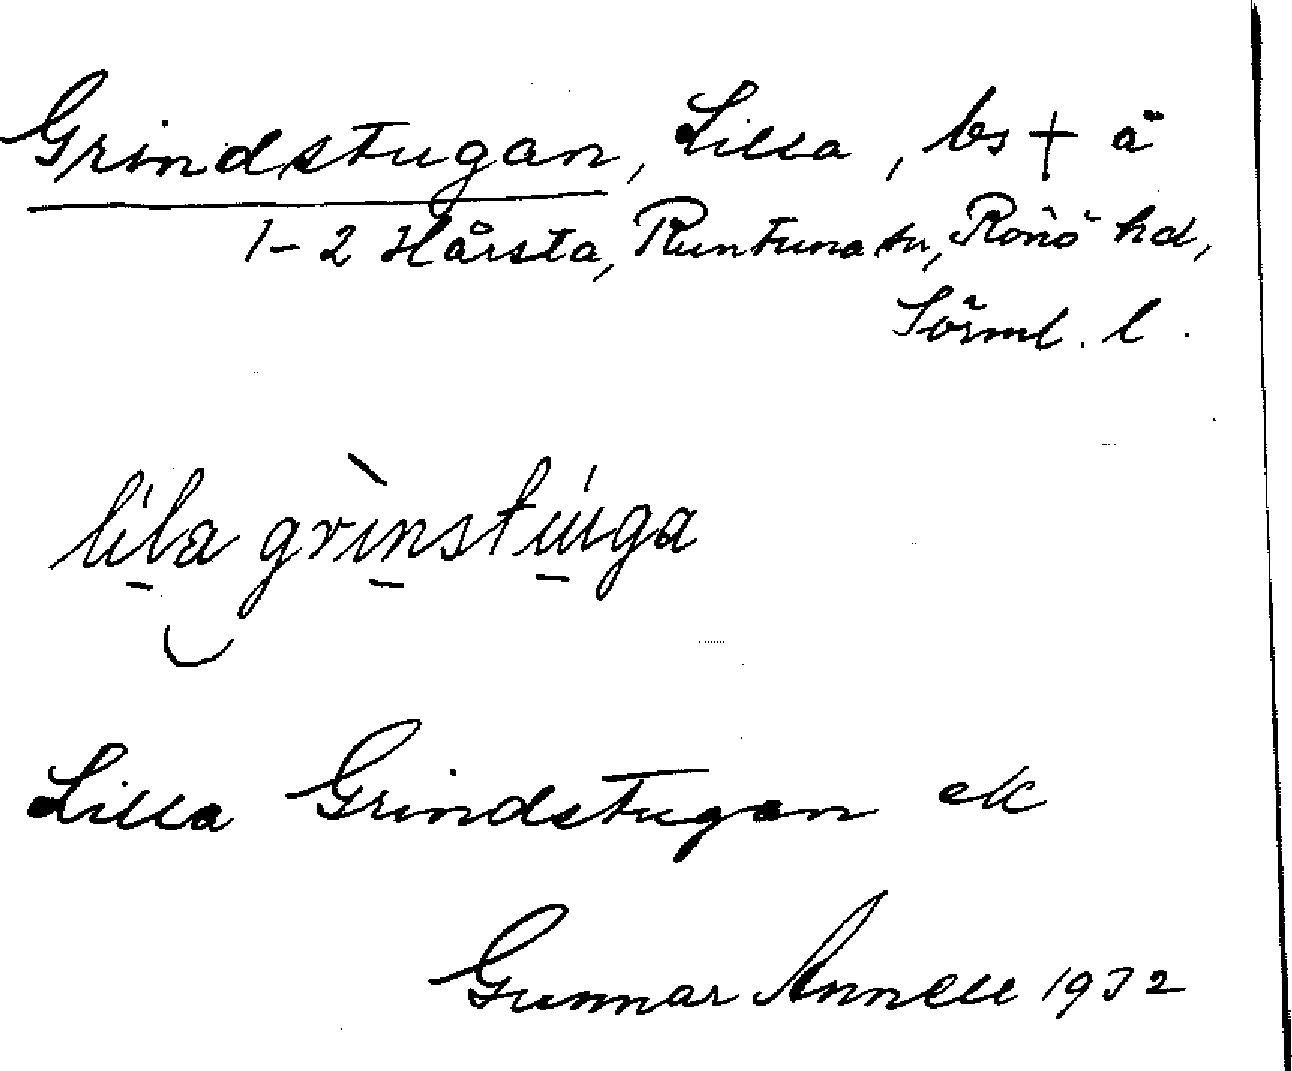 Grindstugan, Lilla, bs + ä
1-2 Hårsta, Runtuna sn, Rönö hd,
Sörml. l.
lila grìnstúga
Lilla Grindstugan ek
Gunnar Annell 1932